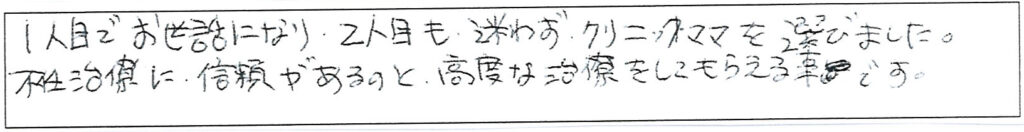 1人目でお世話になり、2人目も、迷わず、クリニックママを選びました。
不妊治療に、信頼があるのと、高度な治療をしてもらえる事です。